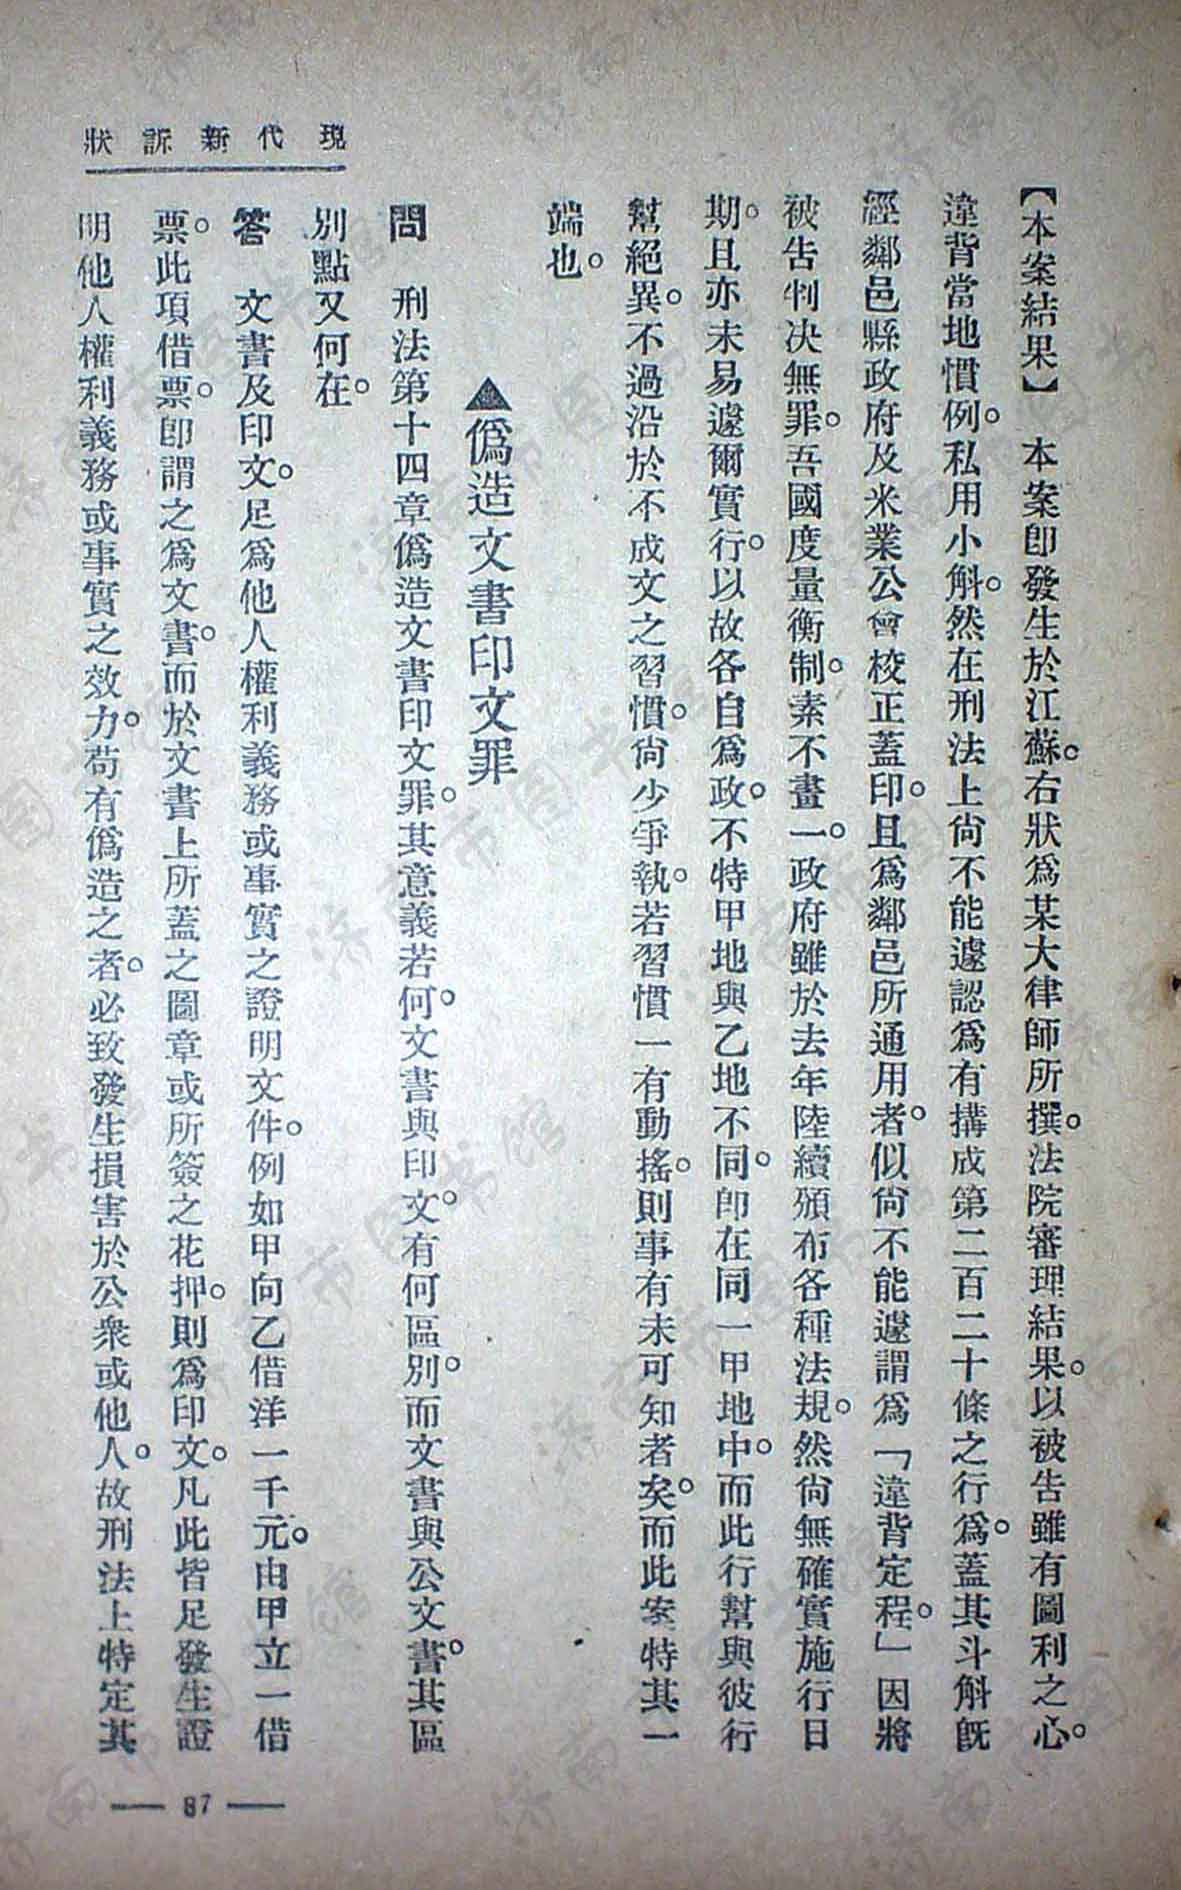 現代新訴狀
【本案結果】　本案卽發生於江蘇。右狀爲某大律師所撰。法院審理結果。以被告雖有圖利之心。
違背當地慣例。私用小斛。然在刑法上尙不能遽認爲有搆成第二百二十條之行爲。蓋其斗斛旣
經鄰邑縣政府及米業公會校正蓋印。且爲鄰邑所通用者。似尙不能遽謂爲「違背定程。」因將
被告判决無罪。吾國度量衡制。素不畫一。政府雖於去年陸續頒布各種法規。然尙無確實施行日
期。且亦未易遽爾實行。以故各自爲政。不特甲地與乙地不同。卽在同一甲地中。而此行幫與彼行
幫絕異。不過沿於不成文之習慣。尙少爭執。若習慣一有動搖。則事有未可知者矣。而此案特其一
端也。
▲僞造文書印文罪
問　刑法第十四章僞造文書印文罪。其意義若何。文書與印文。有何區別。而文書與公文書。其區
別點又何在。
答　文書及印文。足爲他人權利義務或事實之證明文件。例如甲向乙借洋一千元。由甲立一借
票。此項借票。卽謂之爲文書。而於文書上所蓋之圖章或所簽之花押。則爲印文。凡此皆足發生證
明他人權利義務或事實之效力。苟有僞造之者。必致發生損害於公衆或他人。故刑法上特定其
— 87 —
济南市图书馆